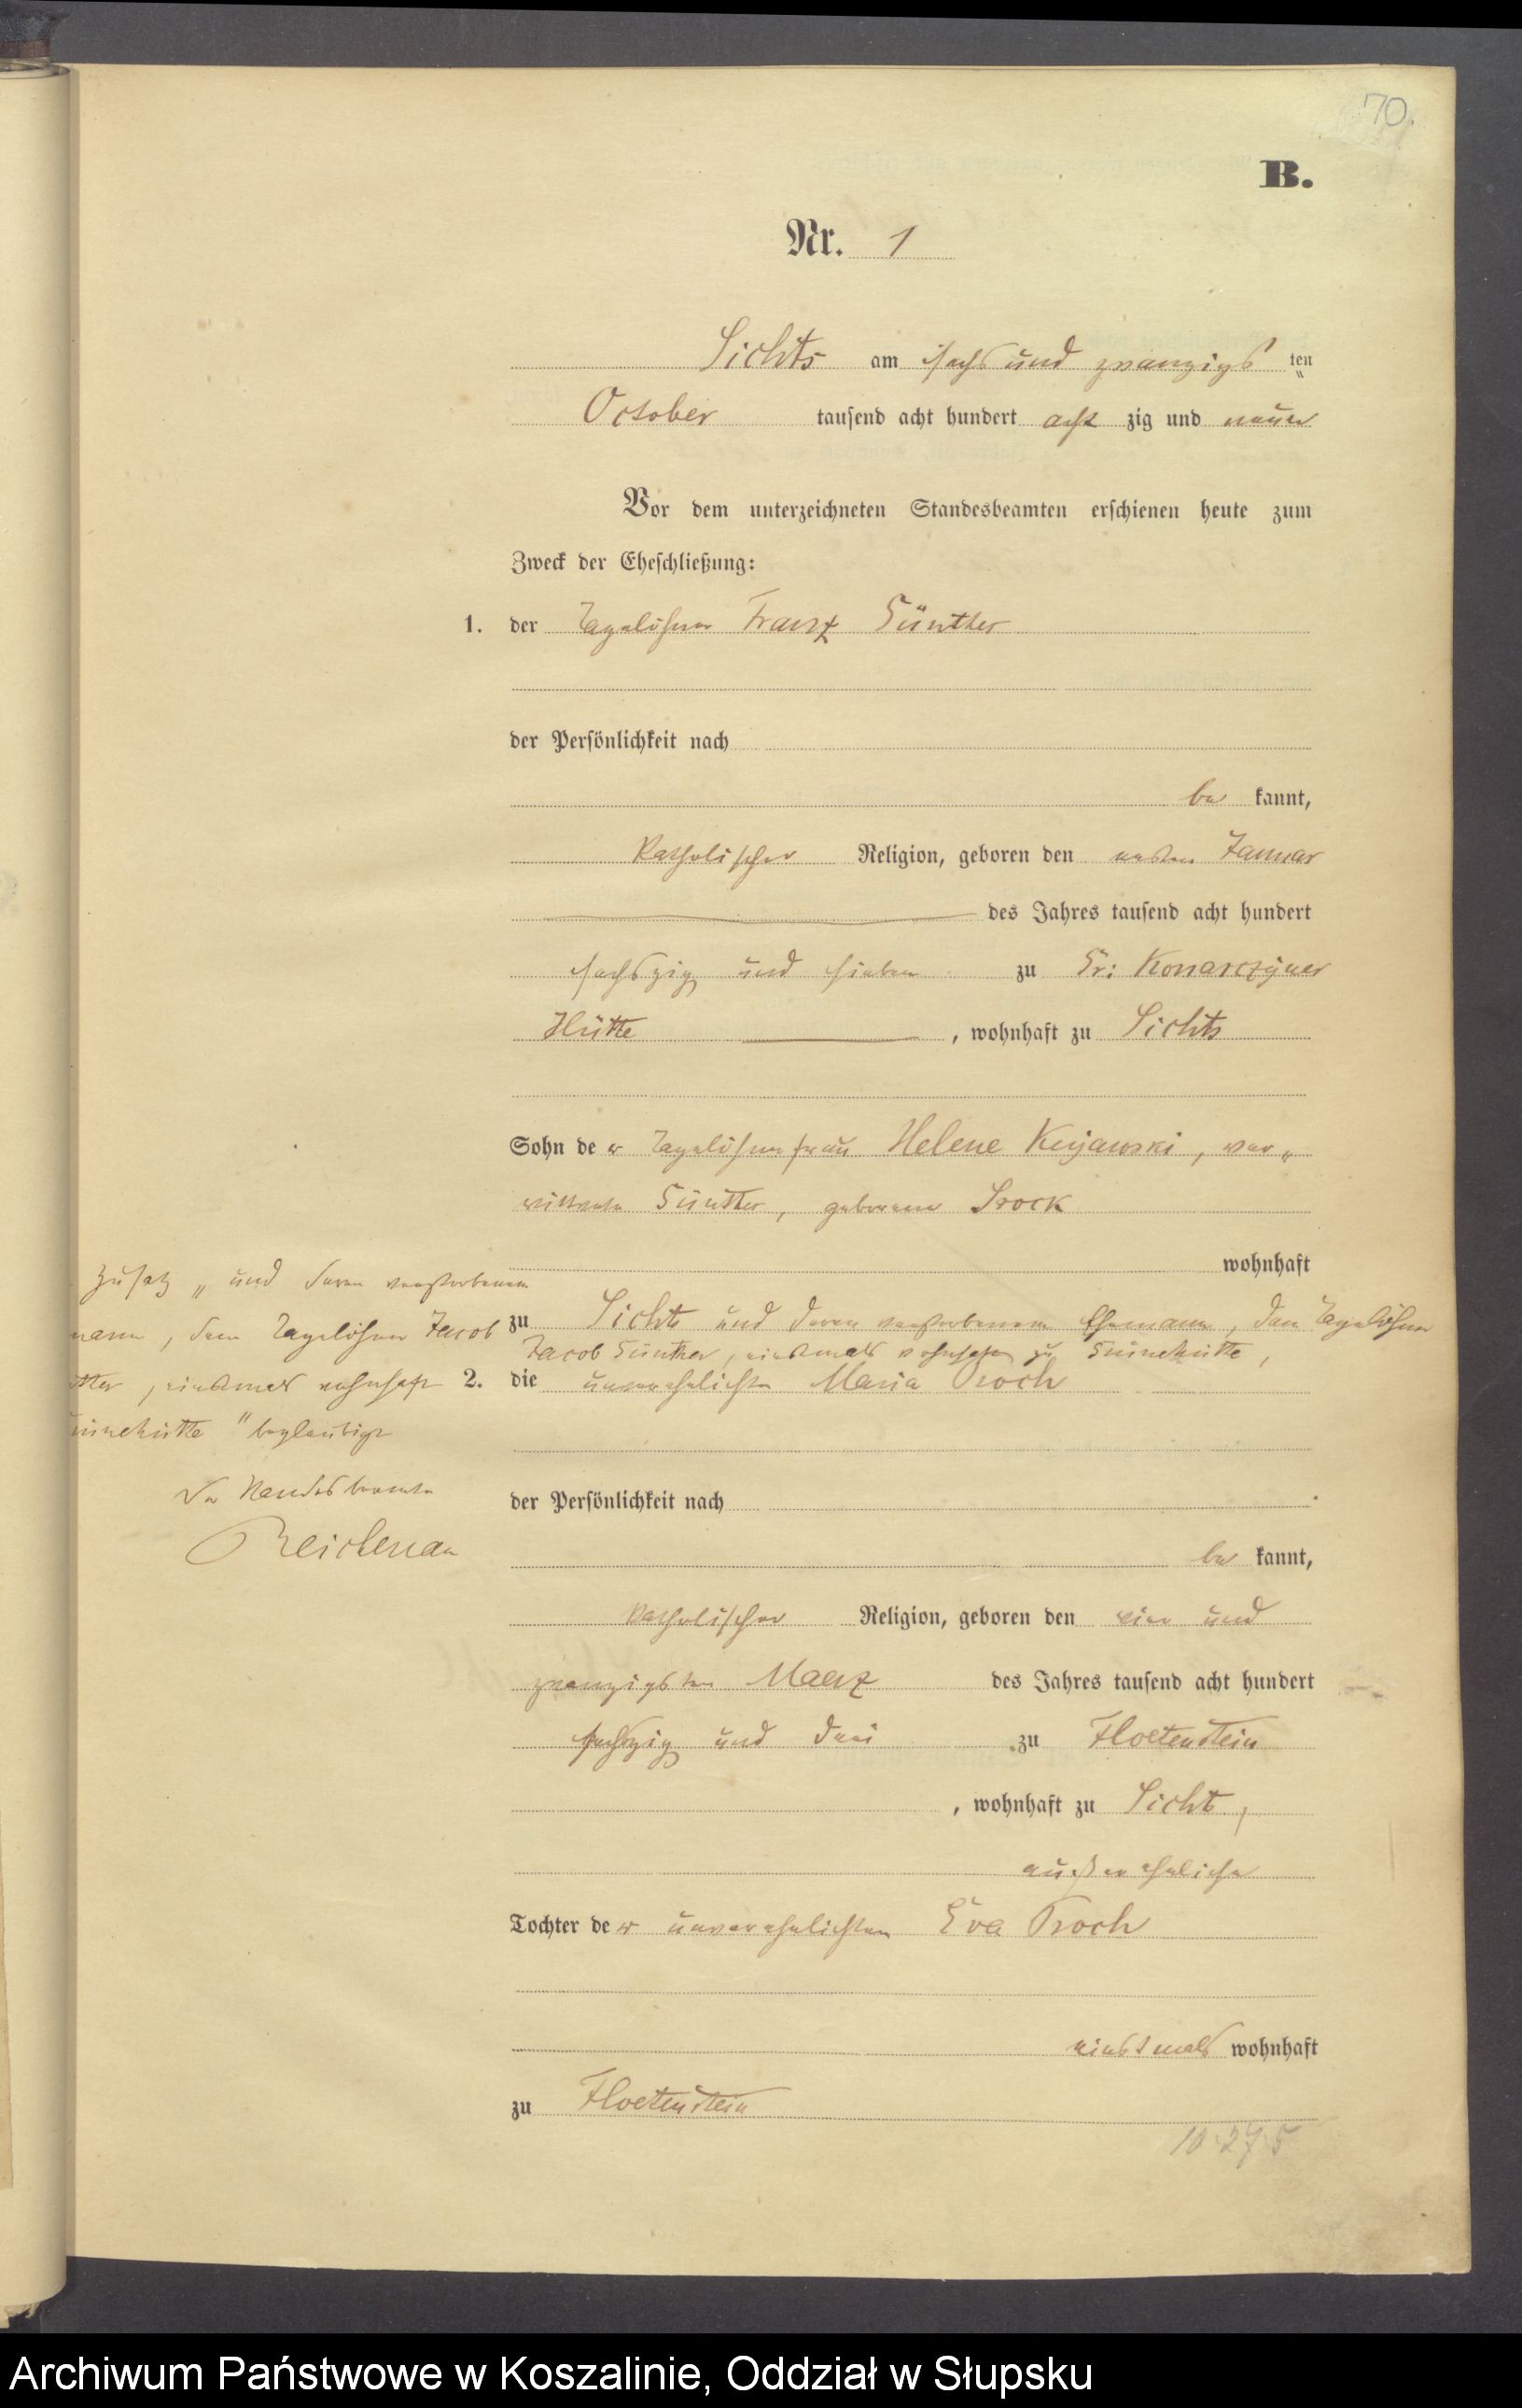 70.
B.
Nr. 1
Sichts am sechs und zwanzigs ten
October tausend acht hundert acht zig und neun
Vor dem unterzeichneten Standesbeamten erschienen heute zum
Zweck der Eheschließung:
1. der Tagelöhner Franz Günther
der Persönlichkeit nach
be kannt,
katholischer Religion, geboren den ersten Januar
des Jahres tausend acht hundert
sechszig und sieben zu Gr: Konarczyner
Hütte , wohnhaft zu Sichts
Sohn der Tagelöhnerfrau Helene Kujawski, ver„
wittwete Günther, geborene Srock
wohnhaft
zu Sichts und deren verstorbenem Ehemann, dem Tagelöhner
Jacob Günther, einstmals wohnhaft zu Grünehütte,
2. die unverehelichte Maria Proch
der Persönlichkeit nach
be kannt,
katholischer Religion, geboren den vier und
zwanzigsten Maerz des Jahres tausend acht hundert
sechszig und drei zu Floetenstein
, wohnhaft zu Sichts,
außereheliche
Tochter der unverehelichten Eva Proch
einstmals wohnhaft
zu Floetenstein
10 275
Zusatz „und deren verstorbenem
mann, dem Tagelöhner Jacob
ther, einstmals wohnhaft
rünehütte" beglaubigt
Der Standesbeamte
Reichenau
Archiwum Państwowe w Koszalinie, Oddział w Słupsku